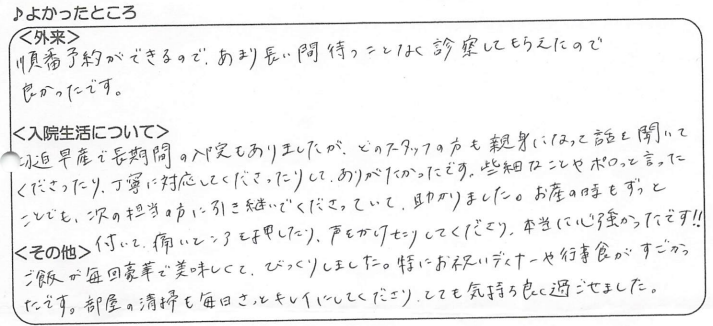 ♪よかったところ
<外来>
順番予約ができるので、あまり長い間待つことなく診察してもらえたので
良かったです。
<入院生活について>
切迫早産で長期間の入院もありましたが、どのスタッフの方も親身になって話を聞いて
くださったり、丁寧に対応してくださったりして、ありがたかったです。些細なことやポロッと言った
ことでも、次の担当の方に引き継いでくださっていて、助かりました。お産の時もずっと
付いて、痛いところを押したり、声をかけたりしてくださり、本当に心強かったです!!
<その他>
ご飯が毎回豪華で美味しくて、びっくりしました。特にお祝いディナーや行事食がすごかっ
たです。部屋の清掃も毎日さっとキレイにしてくださり、とても気持ち良く過ごせました。